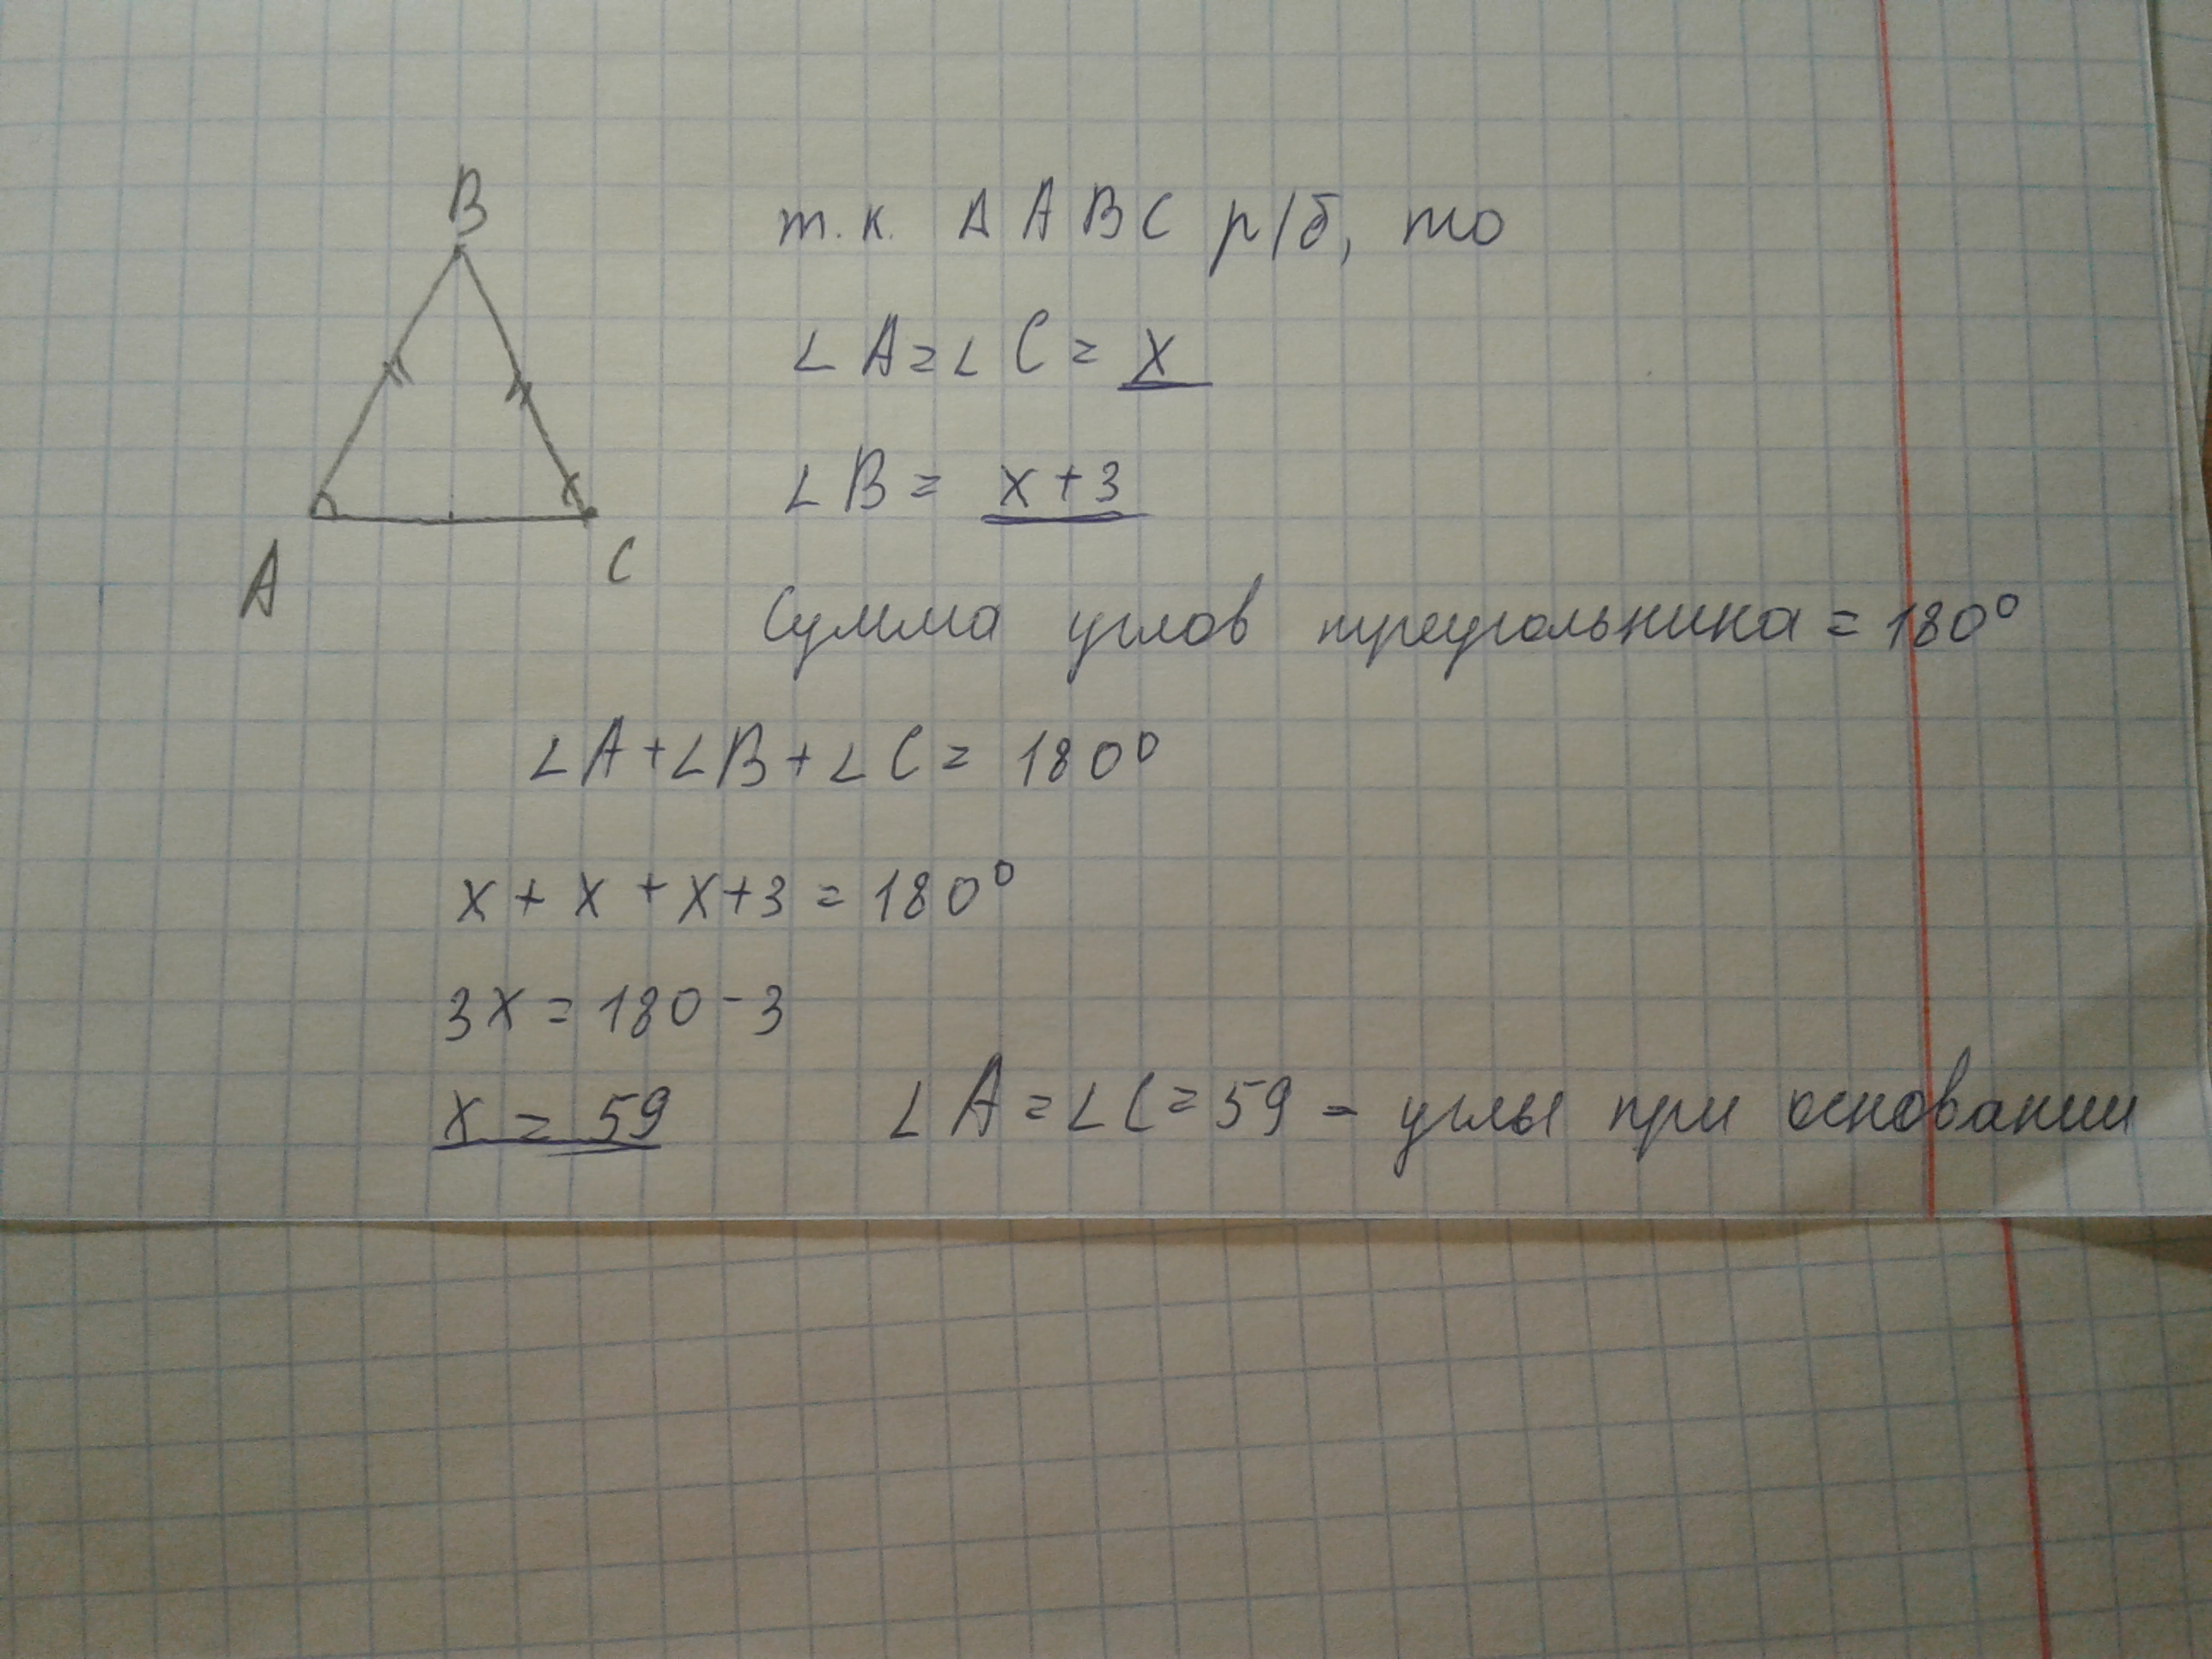 B
A
C
т.к. Δ ABC р/б, то
∠A=∠C= x
∠B= x+3
Сумма углов треугольника = 180°
∠A+∠B+∠C= 180°
x + x + x+3 = 180°
3x = 180 - 3
x = 59
∠A=∠C=59 - углы при основании